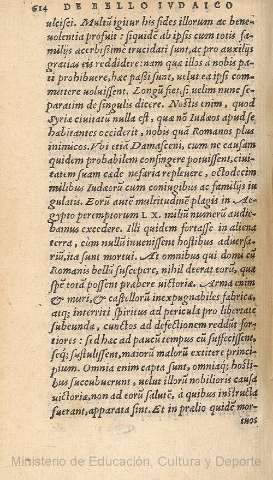 614 DE BELLO IVDAICO
ulcisci. Multũ igitur his fides illorum ac bene-
uolentia profuit : siquidẽ ab ipsis cum totis fa-
milijs acerbissime trucidati sunt, ac pro auxilijs
gratiam eis reddidere: nam quæ illos a nobis pa-
ti prohibuere, hæc passi sunt, uelut ea ipsi com-
mittere uoluissent. Longũ fiet, si uelim nunc se-
paratim de singulis dicere. Nostis enim, quod
Syriæ ciuitatũ nulla est, quæ nõ Iudæos apud se
habitantes occiderit, nobis quã Romanos plus
inimicos. Vbi etiã Damasceni, cum ne causam
quidem probabilem confingere potuissent, ciui-
tatem suam cæde nefaria repleuere, octodecim
milibus Iudæorũ cum coniugibus ac familijs iu
gulatis. Eorũ autẽ multitudinẽ plagis in Ae-
gypto peremptorum LX. miliũ numerũ audie-
bamus excedere. Illi quidem fortasse in aliena
terra, cum nullũ inuenissent hostibus aduersa-
riũ, ita sunt mortui. At omnibus qui domi cũ
Romanis bellũ suscepere, nihil deerat eorũ, quæ
spẽ totã possent præbere uictoriæ. Arma enim
& muri, & castellorũ inexpugnabiles fabricæ,
atq; interriti spiritus ad pericula pro libertate
subeunda, cunctos ad defectionem reddũt for-
tiores : sed hæc ad paucũ tempus cũ suffecissent,
seq; sustulissent, maiorũ malorũ extitere princi-
pium. Omnia enim capta sunt, omniaq; hosti-
bus succubuerunt, uelut illorũ nobilioris causa
uictoriæ, non ad eorũ salutẽ, à quibus instructa
fuerant, apparata sint. Et in prælio quidẽ mor-
tuos
Ministerio de Educación, Cultura y Deporte